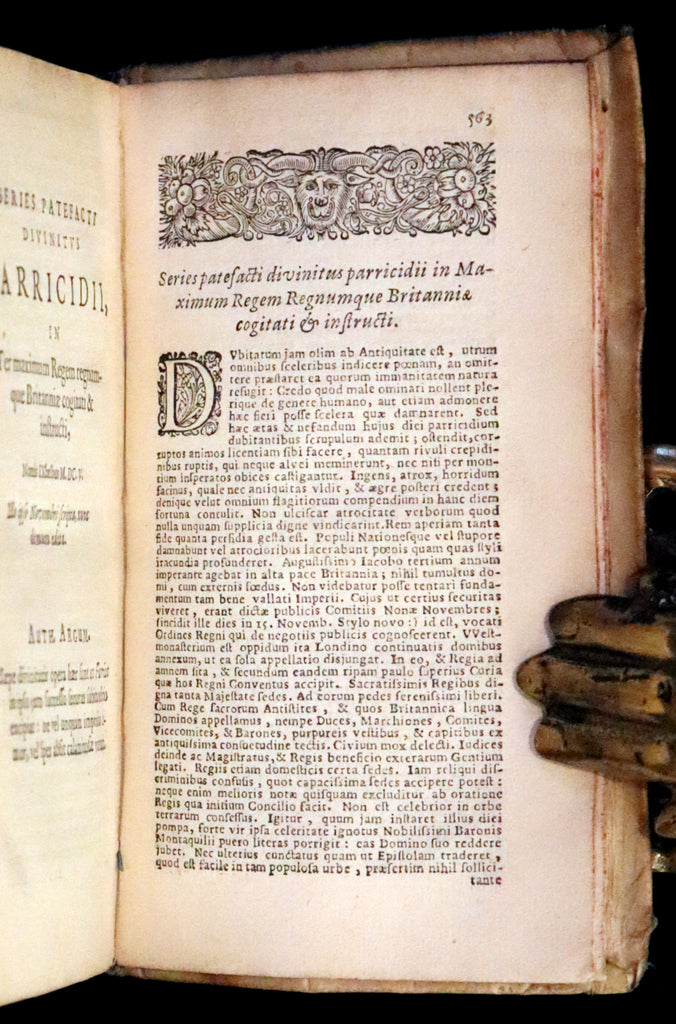 SERIES PATEFACTI
DIVINITVS
PARRICIDII,
IN
Ter maximum Regem regnum-
que Britanniæ cogitati &
instructi,
Nonis IXbribus M.DC.V.
AVTH. ARGEN.
563
Series patefacti divinitus parricidii in Ma-
ximum Regem Regnumque Britanniæ
cogitati & instructi.
DVbitatum jam olim ab Antiquitate est, utrum
omnibus sceleribus indicere pœnam, an omit-
tere præstaret ea quorum immanitatem natura
refugit: Credo quod male ominari nollent ple-
rique de genere humano, aut etiam admonere
hæc fieri posse scelera quæ damnarent. Sed
hæc ætas & nefandum hujus diei parricidium
dubitantibus scrupulum ademit; ostendit, cor-
ruptos animos licentiam sibi facere, quantam rivuli crepidi-
nibus ruptis, qui neque alvei meminerunt, nec niti per mon-
tium insperatos obices castigantur. Ingens, atrox, horridum
facinus, quale nec antiquitas vidit, & ægre posteri credent;
denique velut omnium flagitiorum compendium in hanc diem
fortuna contulit. Non ulciscar atrocitate verborum quod
nulla unquam supplicia digne vindicarint. Rem aperiam tanta
fide quanta perfidia gesta est. Populi Nationesque vel stupore
damnabunt vel atrocioribus lacerabunt pœnis quam quas styli
iracundia profunderet. Augustissimo Iacobo tertium annum
imperante agebat in alta pace Britannia; nihil tumultus do-
mi, cum externis fœdus. Non videbatur posse tentari funda-
mentum tam bene vallati Imperii. Cujus ut certius securitas
viveret, erant dictæ publicis Comitiis Nonæ Novembres;
(incidit ille dies in 15. Novemb. Stylo novo:) id est, vocati
Ordines Regni qui de negotiis publicis cognoscerent. VVest-
monasterium est oppidum ita Londino continuatis domibus
annexum, ut ea sola appellatio disjungat. In eo, & Regia ad
amnem sita, & secundum eandem ripam paulo superius Curia
qua hos Regni Conventus accipit. Sacratissimis Regibus di-
gna tanta Majestate sedes. Ad eorum pedes serenissimi liberi.
Cum Rege sacrorum Antistites, & quos Britannica lingua
Dominos appellamus, nempe Duces, Marchiones, Comites,
Vicecomites, & Barones, purpureis vestibus, & capitibus ex
antiquissima consuetudine tectis. Civium mox delecti. Iudices
deinde ac Magistratus, & Regis beneficio exterarum Gentium
legati. Regiis etiam domesticis certa sedes. Iam reliqui dis-
criminibus confusis, quot capacissima sedes accipere potest:
neque enim melioris notæ quisquam excluditur ab oratione
Regis qua initium Concilio facit. Non est celebrior in orbe
terrarum consessus. Igitur, quum jam instaret illius diei
pompa, forte vir ipsa celeritate ignotus Nobilissimi Baronis
Montaquilii puero literas porrigit: eas Domino suo reddere
jubet. Nec ulterius cunctatus quam ut Epistolam traderet,
quod est facile in tam populosa urbe, præsertim nihil sollici-
tante